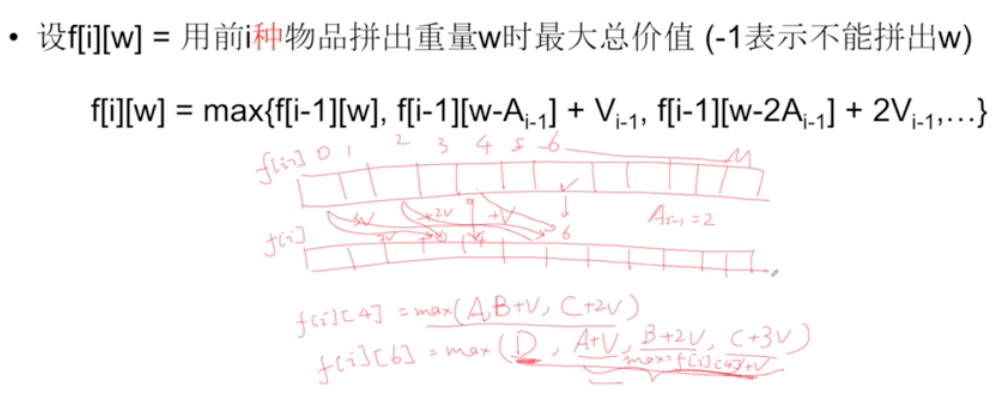 • 设f[i][w] = 用前i种物品拼出重量w时最大总价值 (-1表示不能拼出w)
f[i][w] = max{f[i-1][w], f[i-1][w-Ai-1] + Vi-1, f[i-1][w-2Ai-1] + 2Vi-1,…}
f[i-1] 0 1 2 3 4 5 6 M
3V +2V +V 6 Ai-1=2
f[i] 2V
f[i][4] = max(A, B+V, C+2V)
f[i][6] = max(D, A+V, B+2V, C+3V)
max=f[i][4]+V